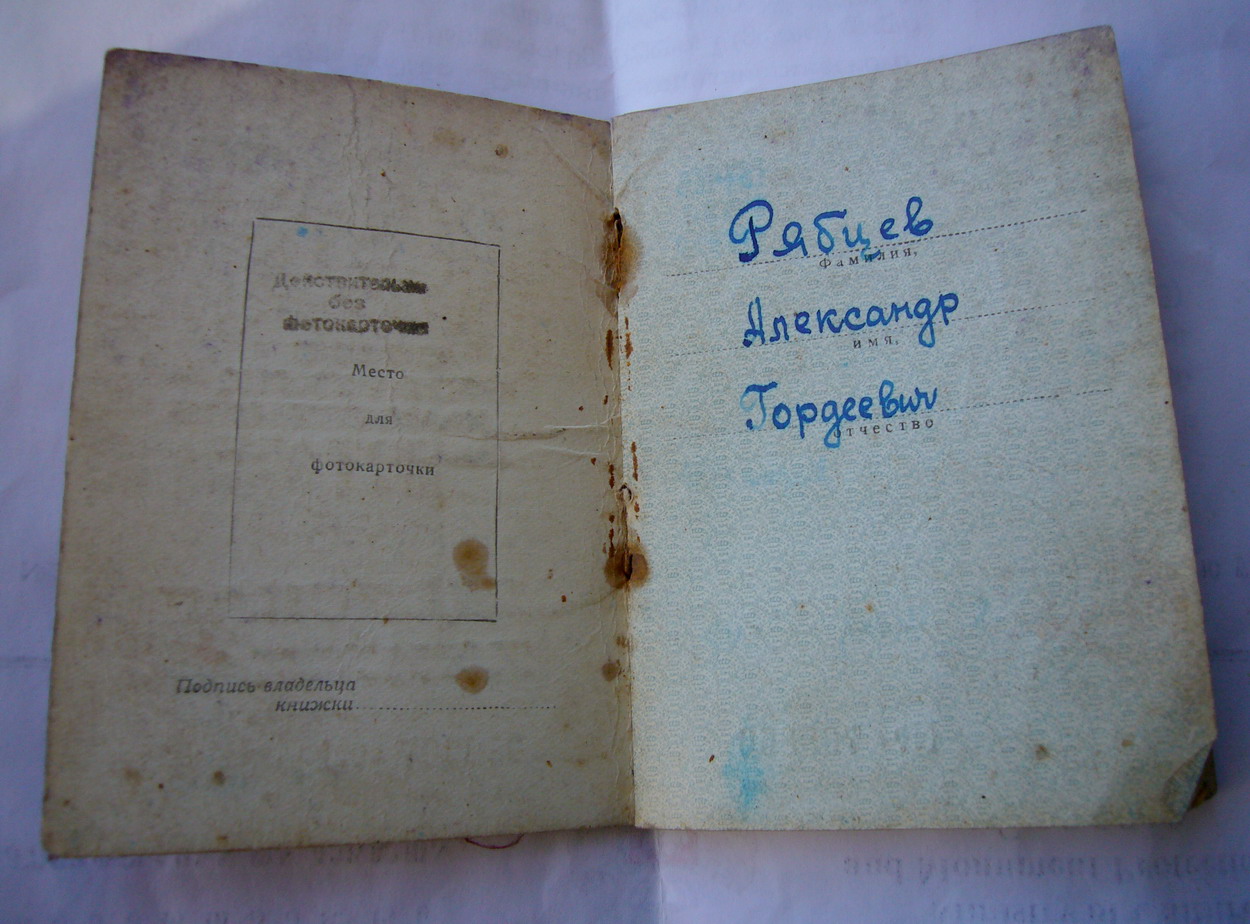 Действительна
без
фотокарточки
Место
для
фотокарточки
Подпись владельца
книжки
Рябцев
Фамилия,
Александр
имя,
Гордеевич
отчество